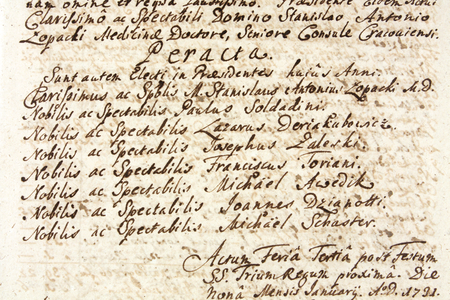 nam omine et regia Praesidente eidem Actui
Clarissimo ac Spectabili Domino Stanislao, Antonio
Łopacki Medicinæ Doctore, Seniore Consule Cracoviensi.
Peracta.
Sunt autem Electi in Præsidentes hujus Anni.
Clarissimus ac Spblis M. Stanislaus Antonius Łopacki M.D.
Nobilis ac Spectabilis Paulus Soldadini.
Nobilis ac Spectabilis Lazarus Deriakubowicz.
Nobilis ac Spectabilis Josephus Zaleski.
Nobilis ac Spectabilis Franciscus Toriani.
Nobilis ac Spectabilis Michaël Awedik
Nobilis ac Spectabilis Joannes Dzianotti.
Nobilis ac Spectabilis Michaël Schaster.
Actum Feria Tertia post Festum
SS. Trium Regum proxima. Die
Nona Mensis Januarij. A.D. 1731.